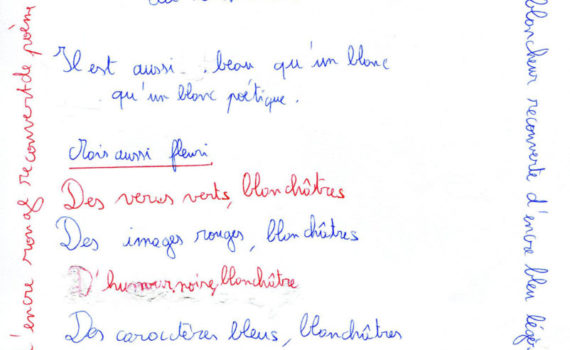 Il est aussi.. beau qu'un blanc
qu'un blanc poétique.
Mais aussi fleuri
Des verus verts, blanchâtres
Des images rouges, blanchâtres
D'humour noire, blanchâtre
Des caractères bleus, blanchâtres
d'encre rouge recouvert de poèm
blancheur recouverte d'encre bleu légèr